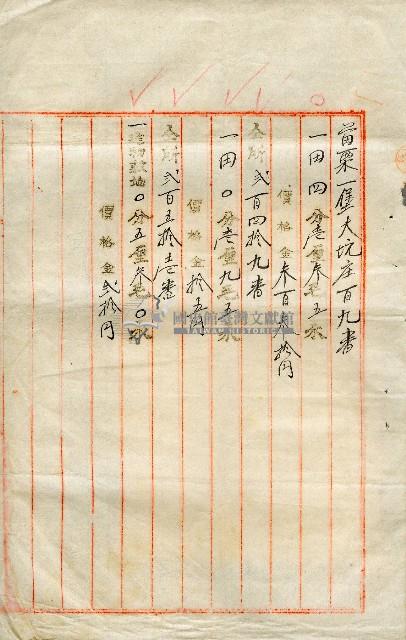 苗栗一堡大坑庄百九番
一田四分壱厘参毛五糸
價格金参百弐拾円
仝所弐百四拾九番
一田〇分壱厘九毛五糸
價格金拾五円
仝所弐百五拾壱番
一建物敷地〇分五厘参毛〇糸
價格金弐拾円
國史館臺灣文獻館
TAIWAN HISTORICA